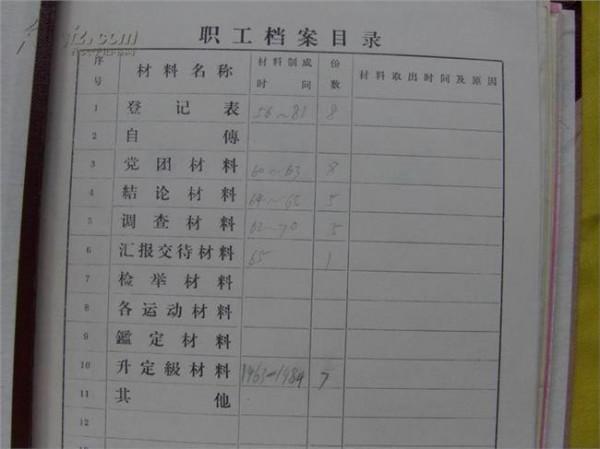 职工档案目录
序号 材料名称 材料制成时间 份数 材料取出时间及原因
1 登记表 56~81 8
2 自傳
3 党团材料 60~63 8
4 結论材料 64~65 5
5 调查材料 62~70 5
6 汇报交待材料 65 1
7 检举材料
8 各运动材料
9 鑑定材料
10 升定級材料 1963-1984 7
11 其他
12